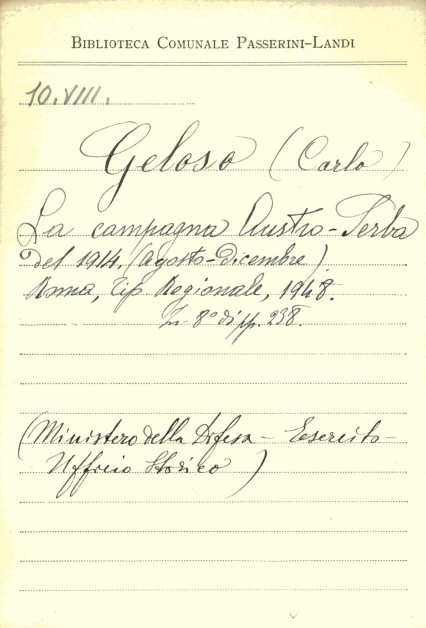 BIBLIOTECA COMUNALE PASSERINI-LANDI
10.VIII.
Geloso (Carlo)
La campagna Austro-Serba
del 1914. (Agosto-Dicembre)
Roma, Tip. Regionale, 1948.
In 8° di pp. 238.
(Ministero della Difesa - Esercito -
Ufficio Storico)